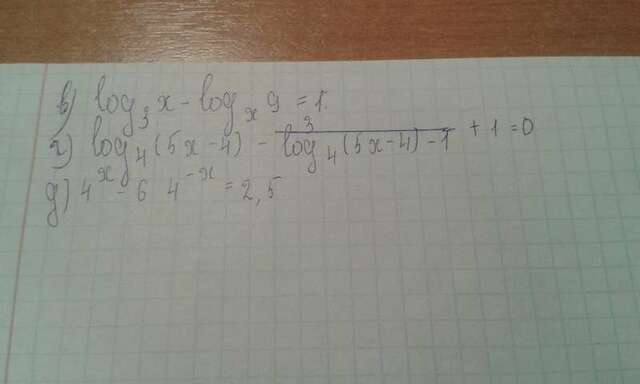 в) log₃ x - logₓ 9 = 1.
г) log₄(5x-4) - 3/(log₄(5x-4)-1) + 1 = 0
д) 4ˣ - 6 4⁻ˣ = 2,5